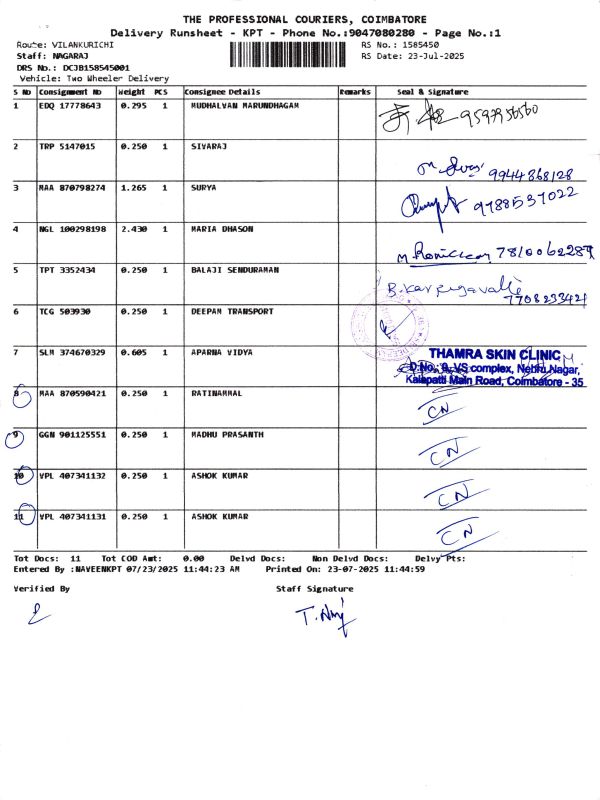 THE PROFESSIONAL COURIERS, COIMBATORE
Delivery Runsheet - KPT - Phone No.:9047080280 - Page No.:1
Route: VILANKURICHI RS No.: 1585450
Staff: NAGARAJ RS Date: 23-Jul-2025
DRS No.: DCJB158545001
Vehicle: Two Wheeler Delivery
S No Consignment No Weight PCS Consignee Details Remarks Seal & Signature
1 EDQ 17778643 0.295 1 MUDHALVAN MARUNDHAGAM
2 TRP 5147015 0.250 1 SIVARAJ 9944868128
3 MAA 870798274 1.265 1 SURYA 9788537022
4 NGL 100298198 2.430 1 MARIA DHASON
5 TPT 3352434 0.250 1 BALAJI SENDURAMAN 7708233421
6 TCG 503930 0.250 1 DEEPAM TRANSPORT
7 SLM 374670329 0.605 1 APARNA VIDYA THAMRA SKIN CLINIC
D.No. 9, VS complex, Nehru Nagar,
Kalapatti Main Road, Coimbatore - 35
8 MAA 870590421 0.250 1 RATINAMMAL CN
9 GGN 901125551 0.250 1 MADHU PRASANTH CN
10 VPL 407341132 0.250 1 ASHOK KUMAR CN
11 VPL 407341131 0.250 1 ASHOK KUMAR CN
Tot Docs: 11 Tot COD Amt: 0.00 Delvd Docs: Non Delvd Docs: Delvy Pts:
Entered By :NAVEENKPT 07/23/2025 11:44:23 AM Printed On: 23-07-2025 11:44:59
Verified By Staff Signature